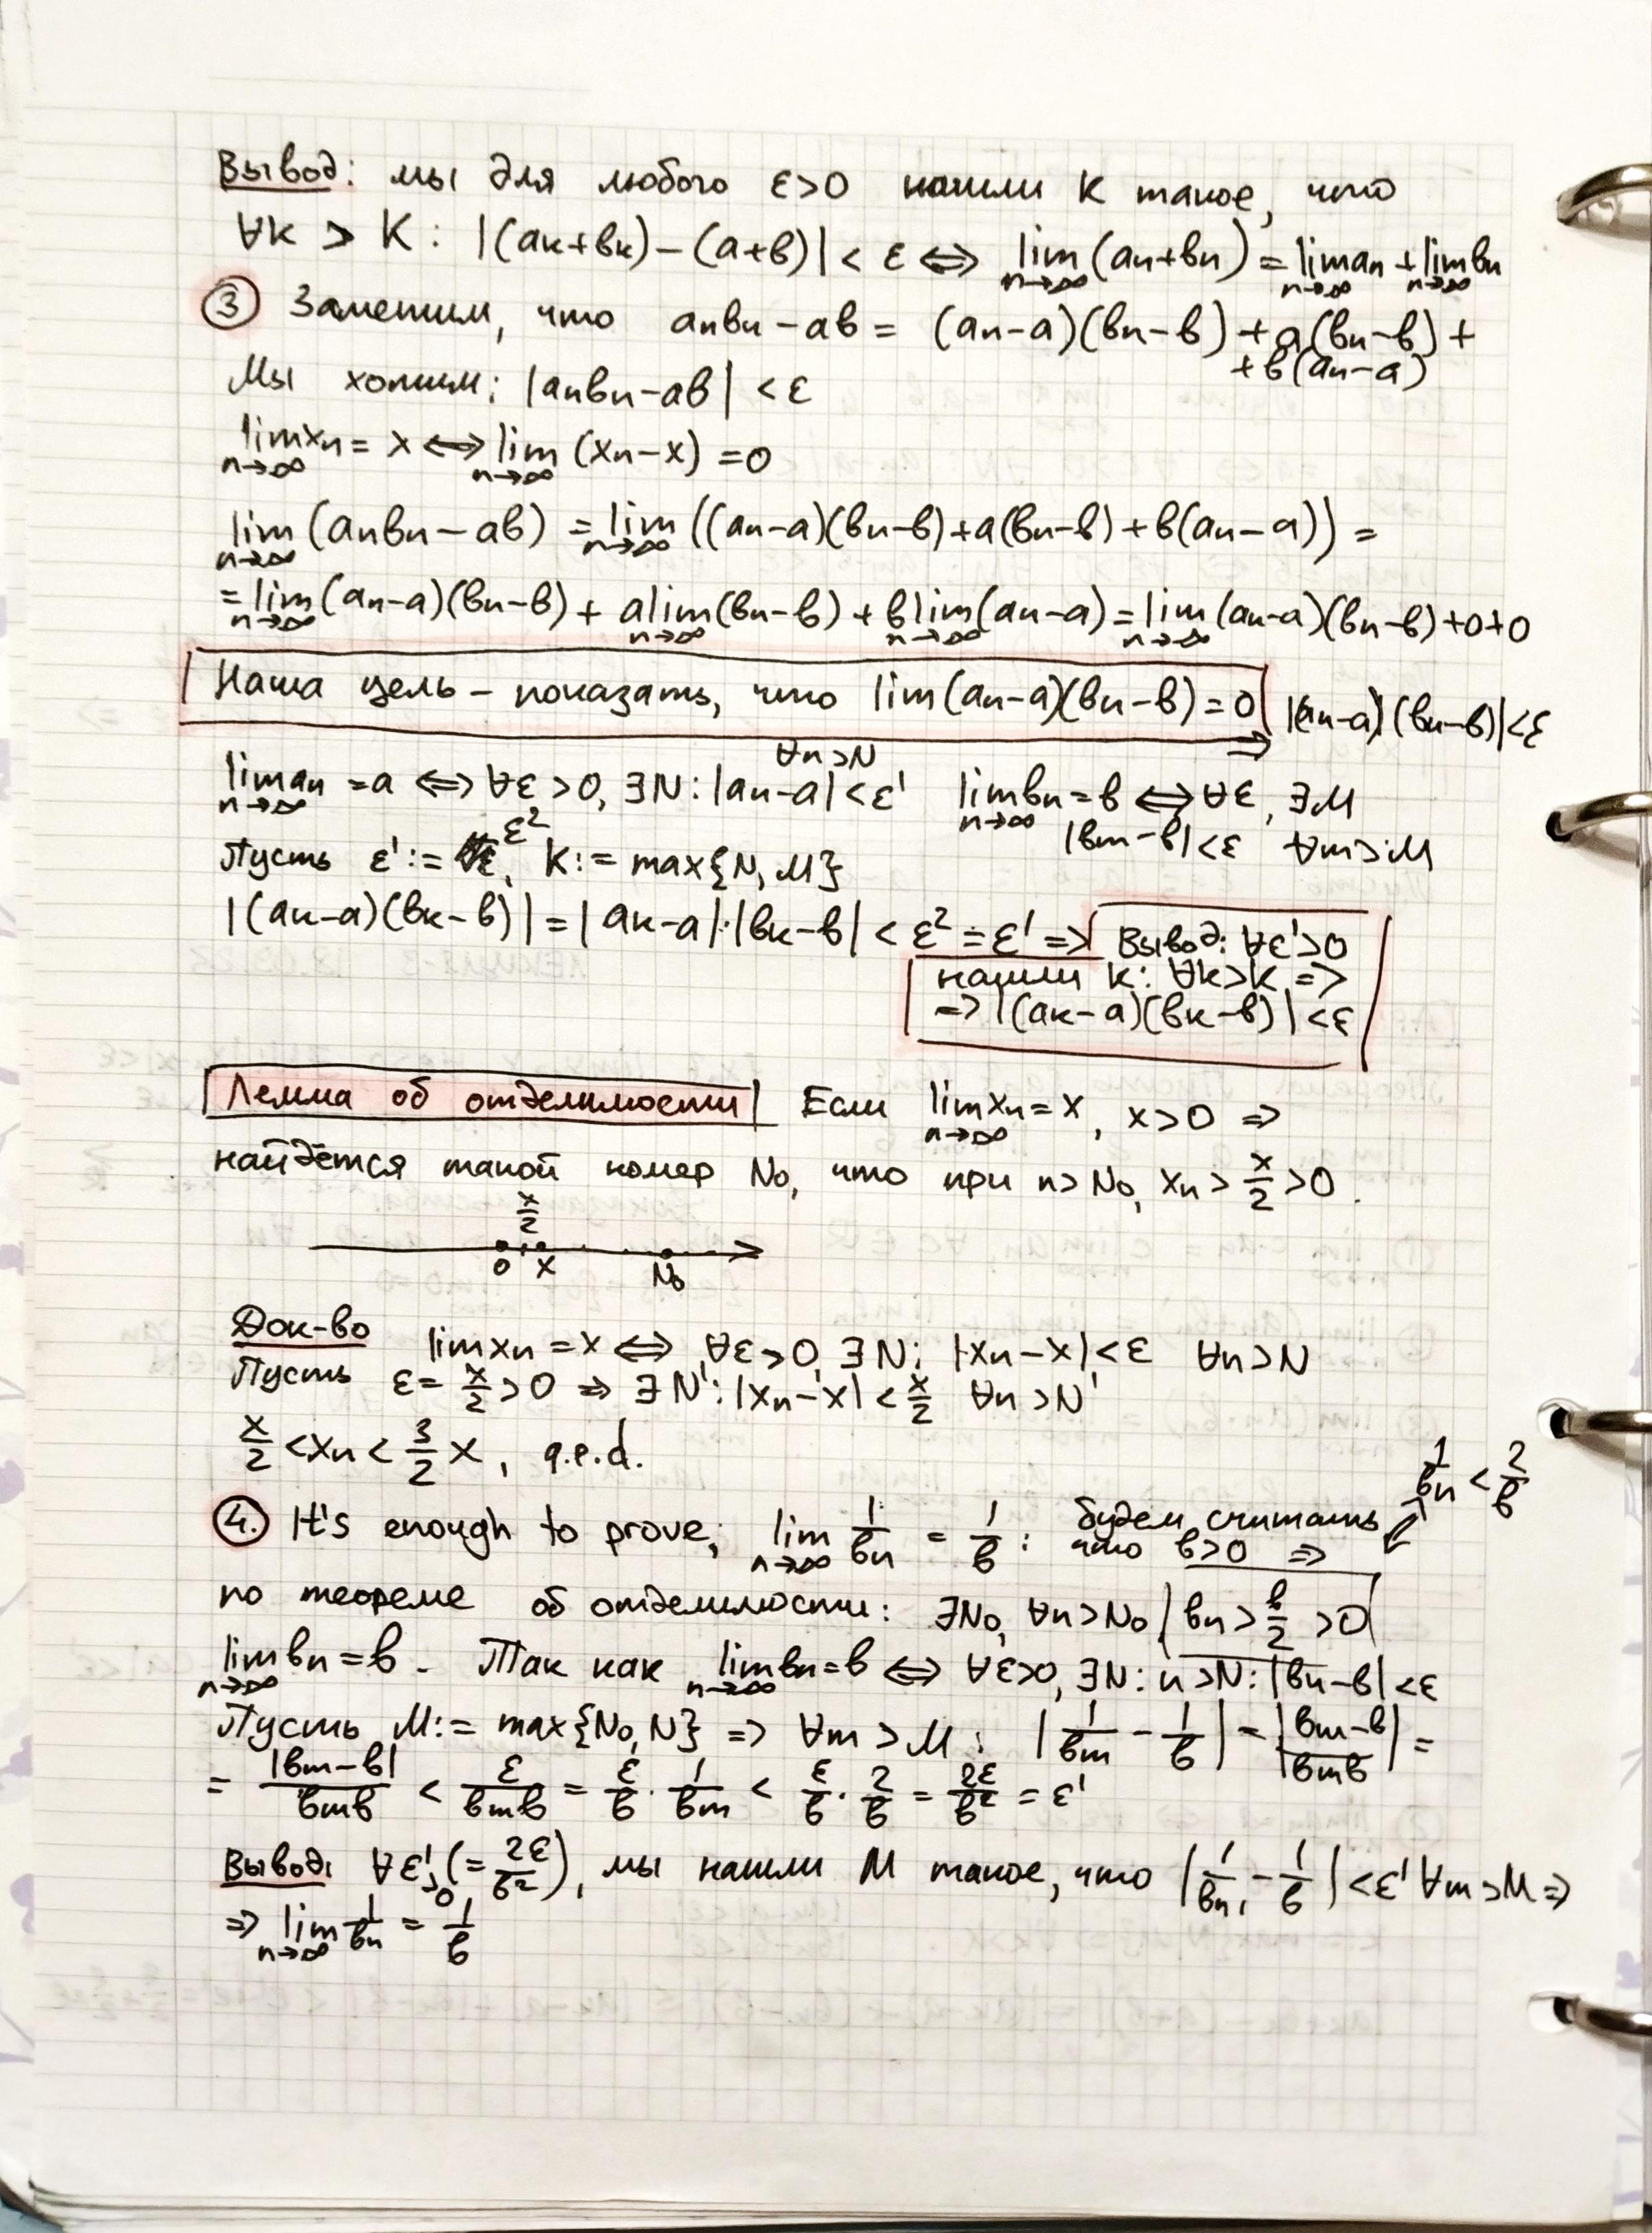 Вывод: мы для любого ε>0 нашли K такое, что
∀k > K: |(aₖ+bₖ)−(a+b)| < ε ⟺ lim(aₙ+bₙ) = lim aₙ + lim bₙ
n→∞ n→∞ n→∞
③ Заметим, что aₙbₙ−ab = (aₙ−a)(bₙ−b) + a(bₙ−b) +
+b(aₙ−a)
Мы хотим: |aₙbₙ−ab| < ε
lim xₙ = x ⟺ lim (xₙ−x) = 0
n→∞ n→∞
lim (aₙbₙ−ab) = lim ((aₙ−a)(bₙ−b)+a(bₙ−b)+b(aₙ−a)) =
n→∞ n→∞
= lim (aₙ−a)(bₙ−b) + a lim(bₙ−b) + b lim(aₙ−a) = lim (aₙ−a)(bₙ−b)+0+0
n→∞ n→∞ n→∞ n→∞
Наша цель – показать, что lim(aₙ−a)(bₙ−b)=0 |(aₙ−a)(bₙ−b)|<ε
⇒
∀n>N
lim aₙ = a ⟺ ∀ε>0, ∃N: |aₙ−a|<ε' lim bₙ = b ⟺ ∀ε, ∃M
n→∞ n→∞ |bₘ−b|<ε ∀m>M
Пусть ε' := ε², K := max{N, M}
|(aₖ−a)(bₖ−b)| = |aₖ−a|·|bₖ−b| < ε² = ε' ⇒ Вывод: ∀ε'>0
нашли K: ∀k>K ⇒
⇒ |(aₖ−a)(bₖ−b)|<ε
Лемма об отделимости Если lim xₙ = x, x>0 ⇒
n→∞
найдётся такой номер N₀, что при n> N₀, xₙ > x/2 >0.
x/2
0 x N₀
Док-во lim xₙ = x ⟺ ∀ε>0, ∃N: |xₙ−x|<ε ∀n>N
Пусть ε = x/2 >0 ⇒ ∃N': |xₙ−x| < x/2 ∀n>N'
x/2 < xₙ < 3/2 x, q.e.d.
1/bₙ < 2/b
④. It's enough to prove; lim 1/bₙ = 1/b : будем считать
n→∞ что b>0 ⇒
по теореме об отделимости: ∃N₀, ∀n>N₀ |bₙ > b/2 >0|
lim bₙ = b. Так как lim bₙ = b ⟺ ∀ε>0, ∃N: n>N: |bₙ−b|<ε
n→∞ n→∞
Пусть M := max{N₀, N} ⇒ ∀m > M: |1/bₘ − 1/b| = |(bₘ−b)/(bₘb)| =
= |bₘ−b|/(bₘb) < ε/(bₘb) = ε/b · 1/bₘ < ε/b · 2/b = 2ε/b² = ε'
Вывод: ∀ε'>0 (= 2ε/b²), мы нашли M такое, что |1/bₘ − 1/b| < ε' ∀m>M ⇒
⇒ lim 1/bₙ = 1/b
n→∞